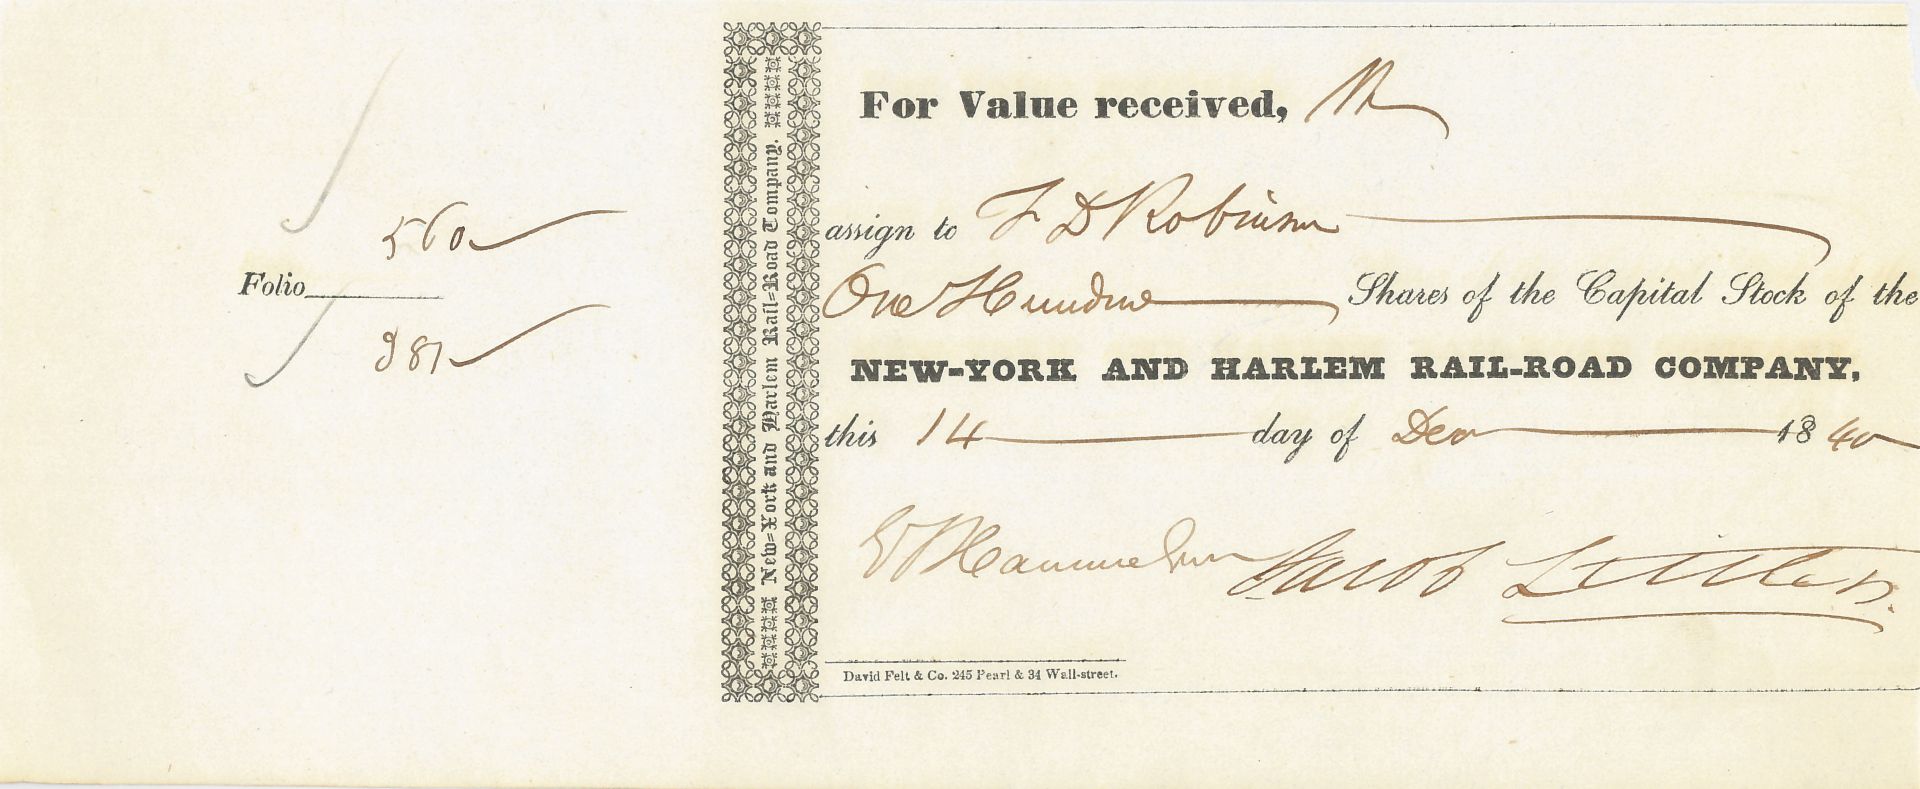 560
Folio
981
New-York and Harlem Rail-Road Company.
For Value received, We
assign to F D Robinson
One Hundred Shares of the Capital Stock of the
NEW-YORK AND HARLEM RAIL-ROAD COMPANY,
this 14 day of Dec 1840
Jacob Little
David Felt & Co. 245 Pearl & 34 Wall-street.